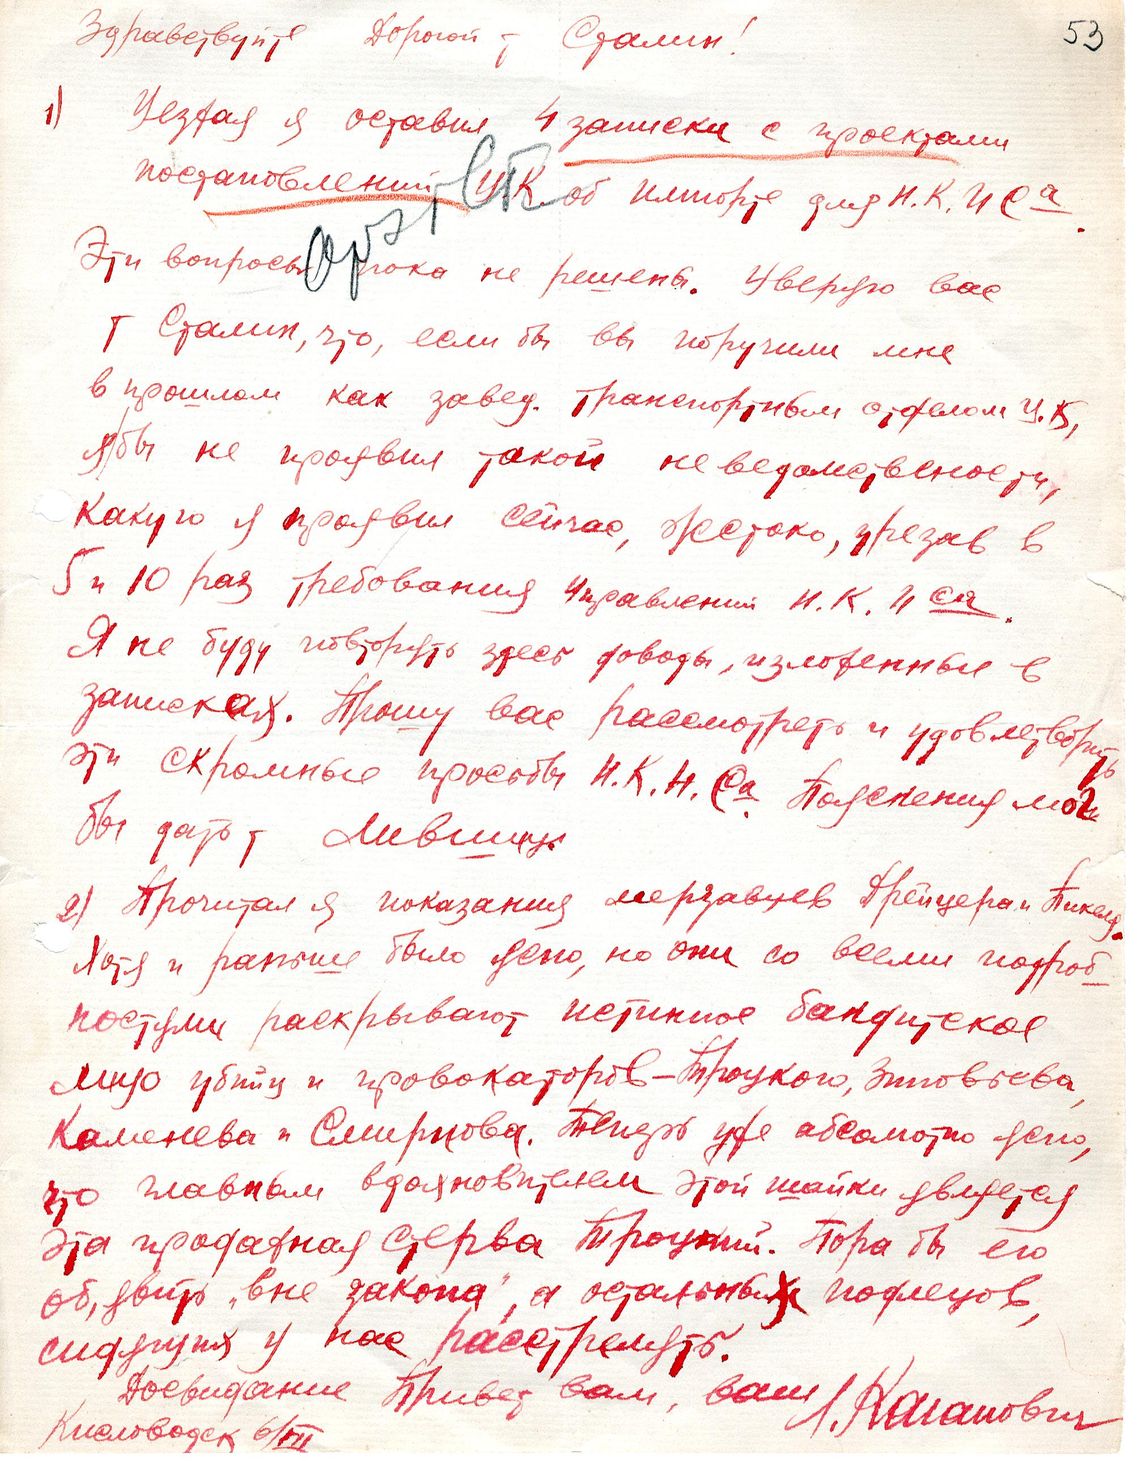 53
Здравствуйте Дорогой т Сталин!
1) Уезжая я оставил 4 записки с проектами
постановлений ЦК об импорте для Н.К.ПСа.
Эти вопросы пока не решены. Уверяю вас
т Сталин, что, если бы вы поручили мне
в прошлом как завед. транспортным отделом Ц.К,
я бы не проявил такой неведомственности,
какую я проявил сейчас, жестоко, урезав в
5 и 10 раз требования управлений Н.К.ПСа.
Я не буду повторять здесь доводы, изложенные в
записках. Прошу вас рассмотреть и удовлетворить
эти скромные просьбы Н.К.П.Са. Пояснения мог
бы дать т Лившиц.
2) Прочитал я показания мерзавцев Дрейцера и Пикеля.
Хотя и раньше было ясно, но они со всеми подроб
ностями раскрывают истинное бандитское
лицо убийц и провокаторов – Троцкого, Зиновьева,
Каменева и Смирнова. Теперь уже абсолютно ясно,
что главным вдохновителем этой шайки является
эта продажная стерва Троцкий. Пора бы его
об,явить „вне закона", а остальных подлецов,
сидящих у нас расстрелять.
Досвидание Привет вам, ваш Л. Каганович
Кисловодск 6/VII